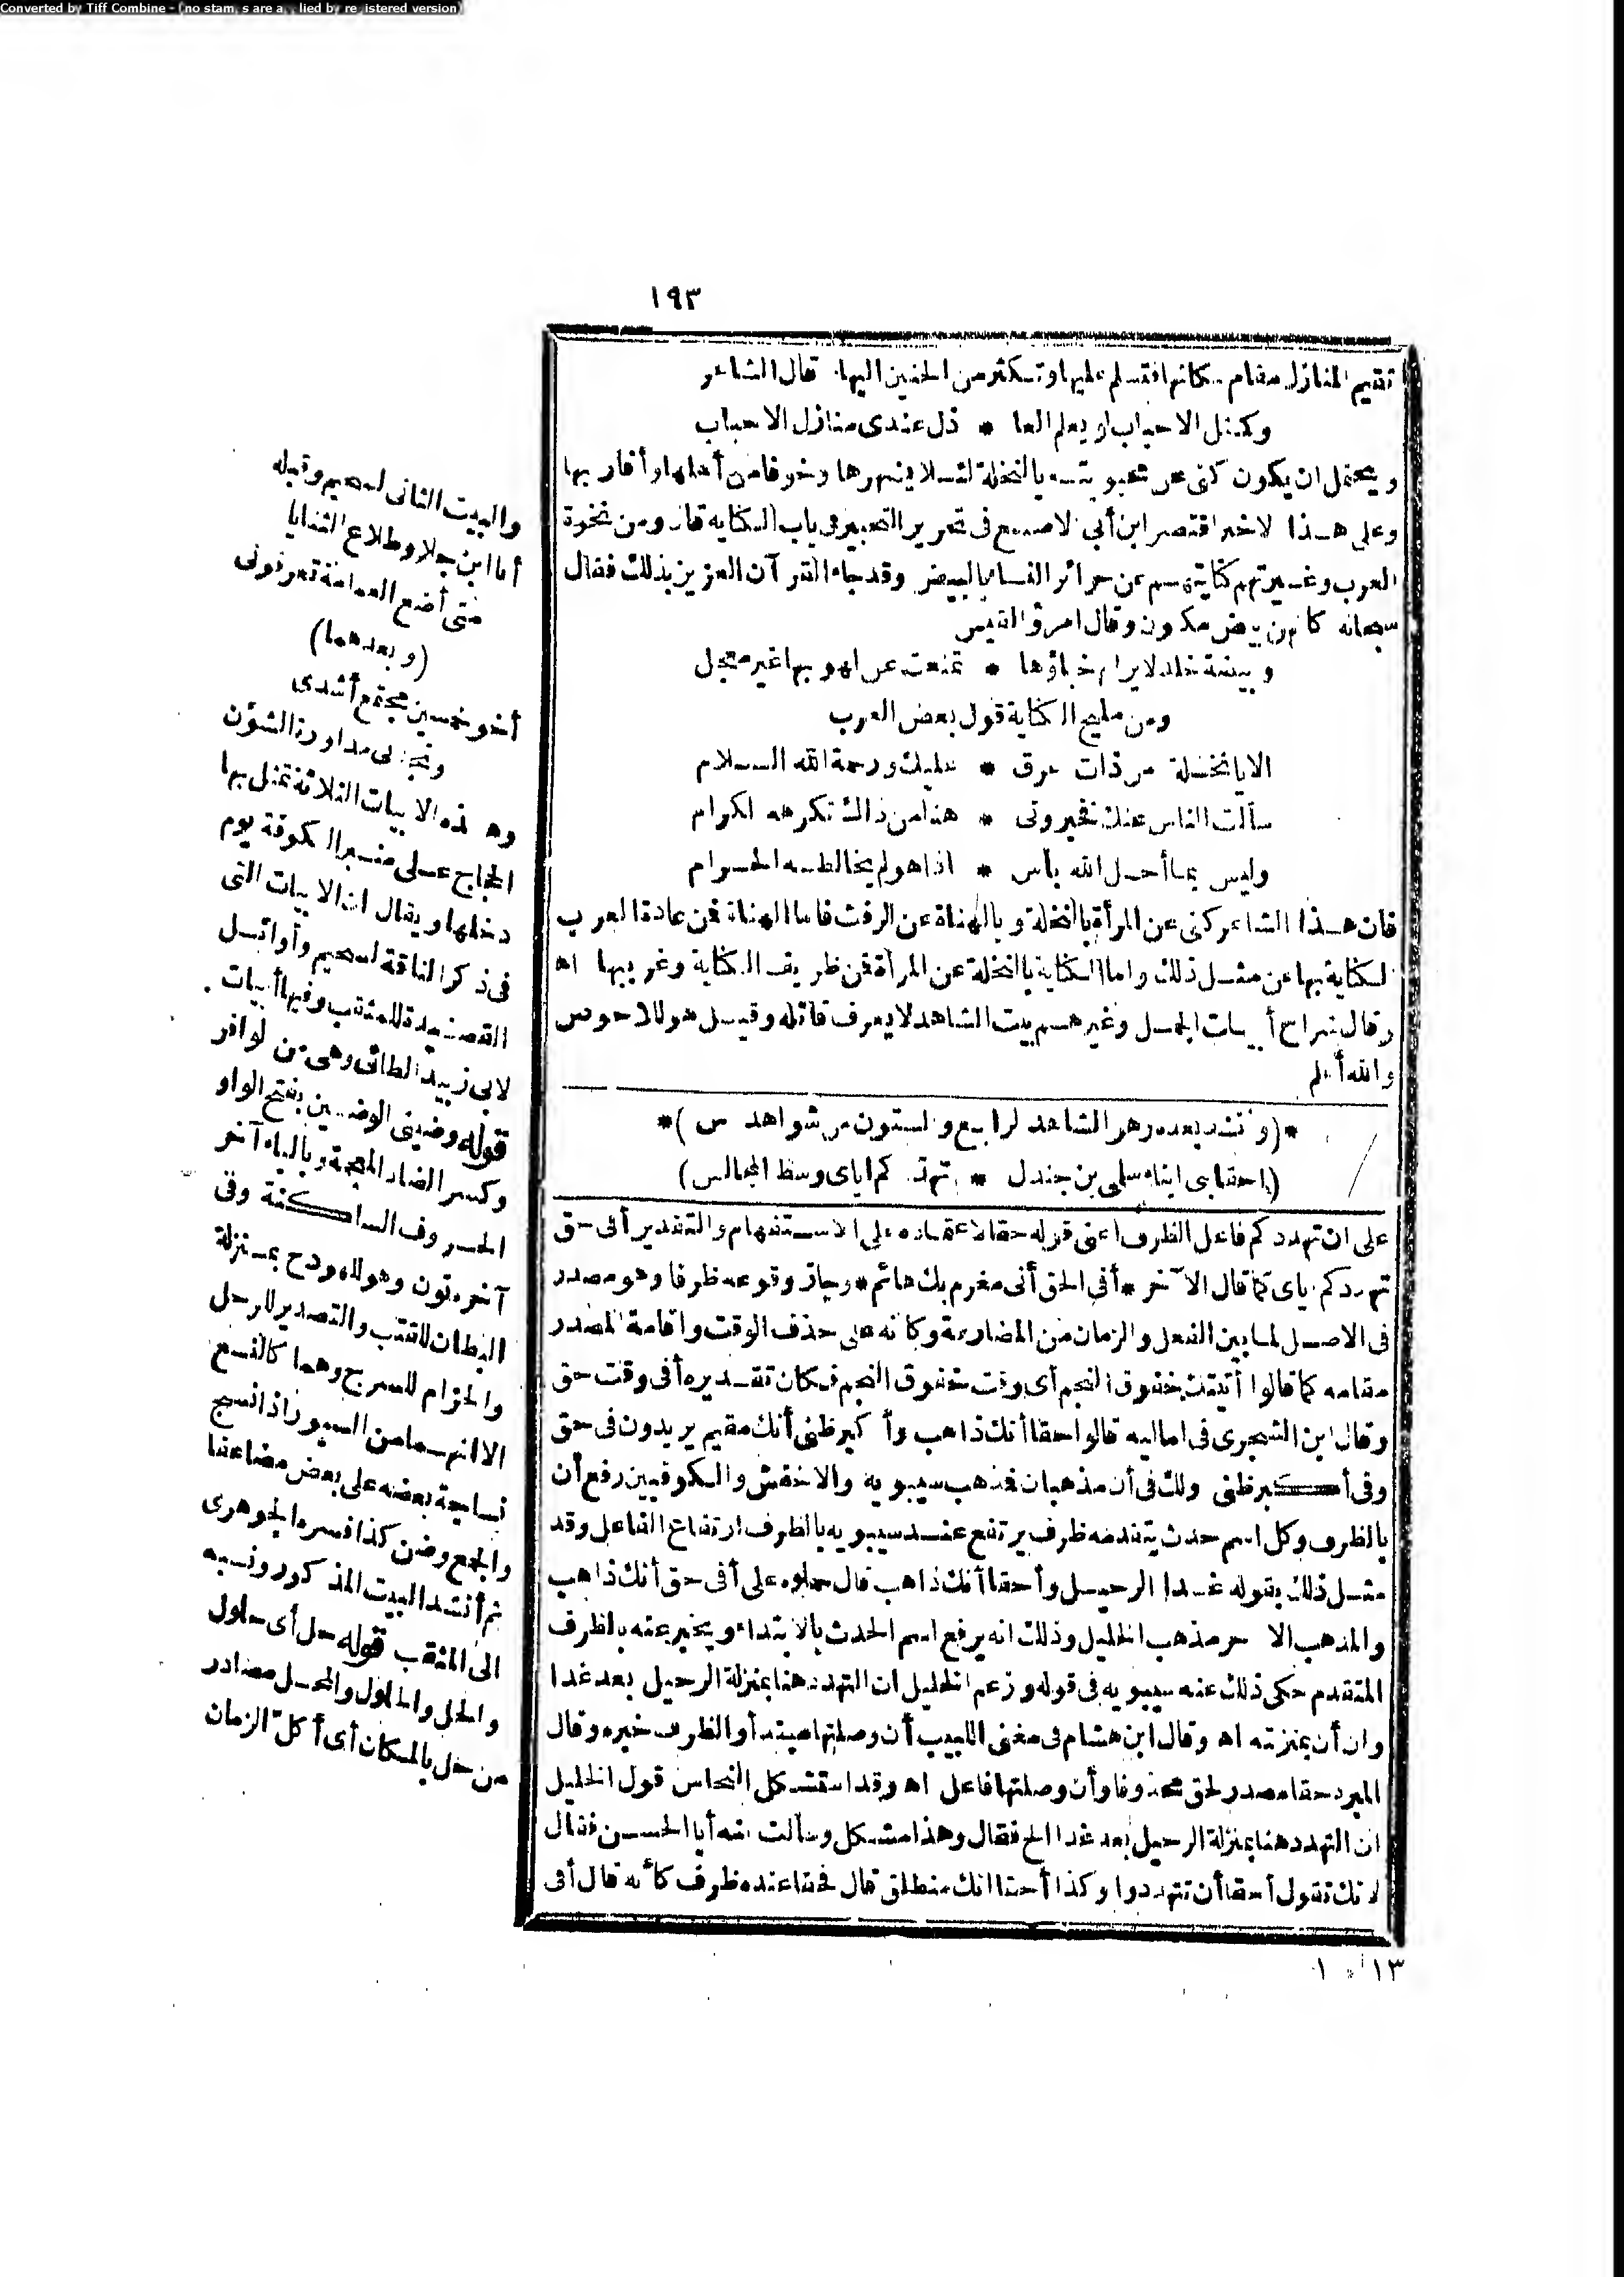 Converted by Tiff Combine - (no stamps are applied by registered version)
١٩٣
تقيم المنازل مقام سكانها فتسلم عليها وتكثر من الحنين اليها قال الشاعر
وكمثل الاحباب لو يعلم العا * ذل عندى منازل الاحباب
ويحتمل ان يكون كنى عن محبوبته بالنخلة لئلا يشهرها وخوفا من أهلها وأقاربها
وعلى هذا الاخير اقتصر ابن أبى الاصبع فى تحرير التحبير فى باب الكناية قال ومن نخوة
العرب وغيرتهم كنايتهم عن حرائر النساء بالبيض وقد جاء القرآن العزيز بذلك فقال
سبحانه كانهن بيض مكنون وقال امرؤ القيس
وبيضة خدر لايرام خباؤها * تمتعت من لهو بها غير معجل
ومن مليح الكناية قول بعض العرب
الا يانخلة من ذات عرق * عليك ورحمة الله السلام
سألت الناس عنك فخبرونى * هنا من ذاك تكرهه الكرام
وليس بما أحل الله بأس * اذا هو لم يخالطه الحرام
فان هذا الشاعر كنى عن المرأة بالنخلة وبالهناة عن الرفث فاما الهناة فمن عادة العرب
الكناية بها عن مثل ذلك واما الكناية بالنخلة عن المرأة فمن ظريف الكناية وغريبها اه
وقال شراح أبيات الجمل وغيرهم بيت الشاهد لايعرف قائله وقيل هو للاحوص
والله أعلم
*(وأنشد بعده وهو الشاهد الرابع والستون من شواهد س)*
(أحقا بنى ابناء سلمى بن جندل * تهددكم اياى وسط المجالس)
على ان تهددكم فاعل الظرف اعنى قوله حقا لاعتماده على الاستفهام والتقدير أفى حق
تهددكم اياى كما قال الآخر * أفى الحق أنى مغرم بك هائم * وجاز وقوعه ظرفا وهو مصدر
فى الاصل لما بين الفعل والزمان من المضارعة وكانه على حذف الوقت واقامة المصدر
مقامه كما قالوا أتيتك خفوق النجم أى وقت خفوق النجم فكان تقديره أفى وقت حق
وقال ابن الشجرى فى اماليه قالوا احقا أنك ذاهب وأكبر ظنى أنك مقيم يريدون فى حق
وفى أكبر ظنى ولك فى أن مذهبان فمذهب سيبويه والاخفش والكوفيين رفع أن
بالظرف وكل اسم حدث يتقدمه ظرف يرتفع عند سيبويه بالظرف ارتفاع الفاعل وقد
مثل ذلك بقوله غدا الرحيل وأحقا أنك ذاهب قال حملوه على أفى حق أنك ذاهب
والمذهب الآخر مذهب الخليل وذلك انه يرفع اسم الحدث بالابتداء ويخبر عنه بالظرف
المتقدم حكى ذلك عنه سيبويه فى قوله وزعم الخليل ان التهدد هنا بمنزلة الرحيل بعد غدا
وان أن بمنزلته اه وقال ابن هشام فى مغنى اللبيب أن وصلتها مبتدأ والظرف خبره وقال
المبرد حقا مصدر لحق محذوفا وأن وصلتها فاعل اه وقد استشكل النحاس قول الخليل
ان التهدد هنا بمنزلة الرحيل بعد غدا الخ فقال وهذا مشكل وسألت عنه أبا الحسن فقال
لانك تقول أحقا أن تتهددوا وكذا أحقا انك منطلق قال فحقا عنده ظرف كأنه قال أفى
١٣
والبيت الثانى لسحيم وقبله
أنا ابن جلا وطلاع الثنايا
متى أضع العمامة تعرفونى
(وبعدهما)
أخو خمسين مجتمع أشدى
ونجذنى مداورة الشؤن
وهذه الابيات الثلاثة تمثل بها
الحجاج على منبر الكوفة يوم
دخلها ويقال ان الابيات التى
فى ذكر الناقة لسحيم وأوائل
القصيدة للمثقب وفيها أبيات
لابى زبيد الطائى وهى من الوافر
قوله وضينى الوضين بفتح الواو
وكسر الضاد المعجمة وبالياء آخر
الحروف الساكنة وفى
آخره نون وهو للهودج بمنزلة
البطان للقتب والتصدير للرحل
والحزام للسرج وهما كالنسع
الا انهما من السيور اذا نسج
نساجة بعضه على بعض مضاعفا
والجمع وضن كذا فسره الجوهرى
ثم أنشد البيت المذكور ونسبه
الى المثقب قوله حل أى حلول
والحل والحلول والمحل مصادر
من حل بالمكان أى أكل الزمان